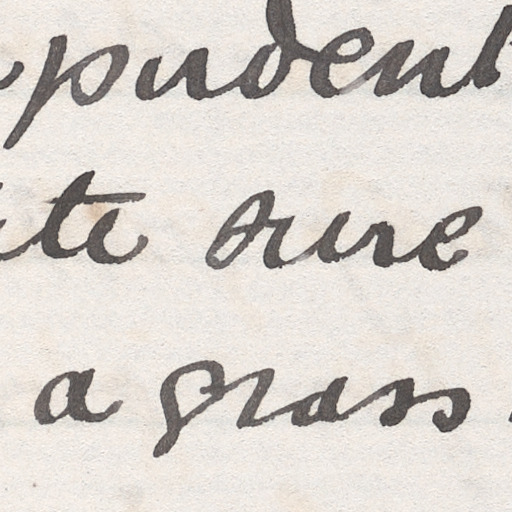 pudent
ite sure
a grass